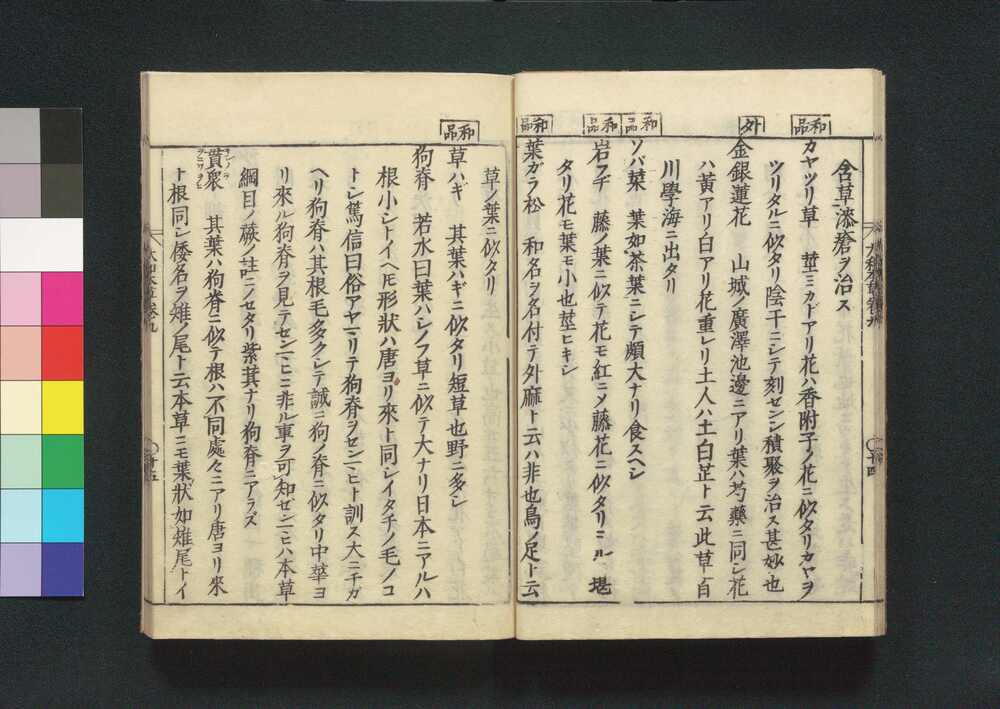 含草漆瘡ヲ治ス
和品
カヤツリ草 莖ミカドアリ花ハ香附子ノ花ニ似タリカヤヲ
ツリタルニ似タリ陰干ニシテ刻センシ積聚ヲ治ス甚妙也
外
金銀蓮花 山城ノ廣澤池邊ニアリ葉ハ芍藥ニ同シ花
ハ黄アリ白アリ花重レリ土人ハ土白芷ト云此草ノ自
川學海ニ出タリ
和品
ソバ菜 葉如茶葉ニシテ頗大ナリ食スヘシ
和品
岩フヂ 藤ノ葉ニ似テ花モ紅ニメ藤花ニ似タリミルニ堪
タリ花モ葉モ小也莖ヒキシ
和品
葉ガラ松 和名ヲ名付テ外麻ト云ハ非也鳥ノ足ト云
十四
草ノ葉ニ似タリ
和品
草ハギ 其葉ハギニ似タリ短草也野ニ多シ
狗脊 若水曰葉ハシノフ草ニ似テ大ナリ日本ニアルハ
根小シトイヘ𪜈形狀ハ唐ヨリ來ト同シイタチノ毛ノコ
トシ篤信曰俗アヤマリテ狗脊ヲゼンマヒト訓ス大ニチガ
ヘリ狗脊ハ其根毛多クシテ誠ニ狗ノ脊ニ似タリ中華ヨ
リ來ル狗脊ヲ見テゼンマヒニ非ル事ヲ可知ゼンマヒハ本草
綱目ノ蕨ノ註ニノセタリ紫萁ナリ狗脊ニアラズ
貫衆 其葉ハ狗脊ニ似テ根ハ不同處々ニアリ唐ヨリ來
ト根同シ倭名ヲ雉ノ尾ト云本草ニモ葉狀如雉尾トイ
大和本草卷九
十五